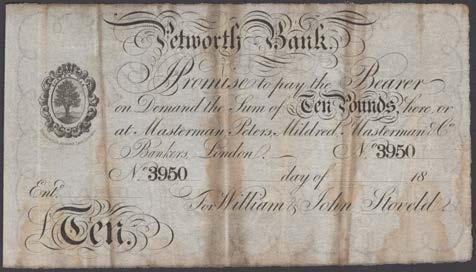 Petworth Bank.
I Promise to pay the Bearer
on Demand the Sum of Ten Pounds, here or
at Masterman Peters, Mildred, Masterman & Co
Bankers, London. No 3950
No 3950 day of 18
For William & John Stoveld
Entd
£Ten.